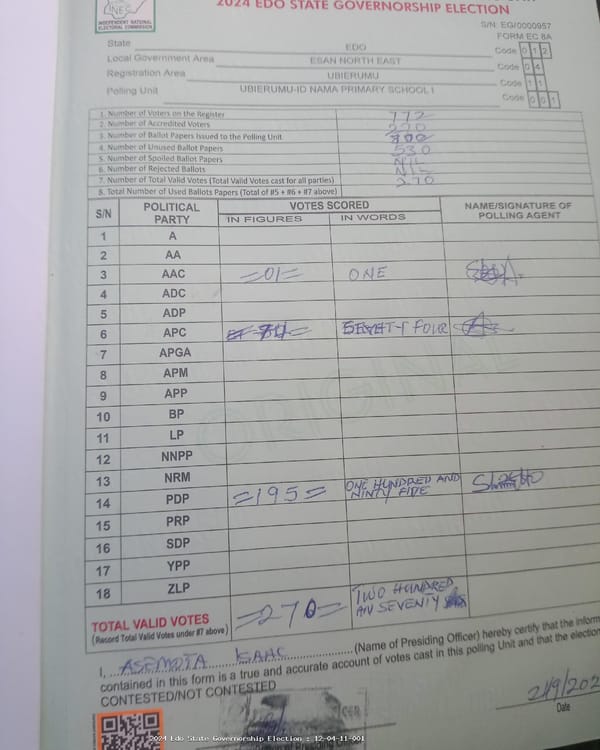 2024 EDO STATE GOVERNORSHIP ELECTION
INEC
INDEPENDENT NATIONAL
ELECTORAL COMMISSION
S/N: EG/0000957
FORM EC 8A
State EDO Code 0 1 2
Local Government Area ESAN NORTH EAST Code 0 4
Registration Area UBIERUMU Code 1 1
Polling Unit UBIERUMU-ID NAMA PRIMARY SCHOOL I Code 0 0 1
1. Number of Voters on the Register 772
2. Number of Accredited Voters 270
3. Number of Ballot Papers Issued to the Polling Unit
4. Number of Unused Ballot Papers 530
5. Number of Spoiled Ballot Papers NIL
6. Number of Rejected Ballots NIL
7. Number of Total Valid Votes (Total Valid Votes cast for all parties) 270
8. Total Number of Used Ballots Papers (Total of #5 + #6 + #7 above)
S/N POLITICAL PARTY VOTES SCORED NAME/SIGNATURE OF POLLING AGENT
IN FIGURES IN WORDS
1 A
2 AA
3 AAC =01= ONE
4 ADC
5 ADP
6 APC 74= SEVENTY FOUR
7 APGA
8 APM
9 APP
10 BP
11 LP
12 NNPP
13 NRM
14 PDP =195= ONE HUNDRED AND NINTY FIVE
15 PRP
16 SDP
17 YPP
18 ZLP
TOTAL VALID VOTES =270= TWO HUNDRED AN SEVENTY
(Record Total Valid Votes under #7 above)
ORIGINAL
I, ASEMOTA ISAAC (Name of Presiding Officer) hereby certify that the inform
contained in this form is a true and accurate account of votes cast in this polling Unit and that the election
CONTESTED/NOT CONTESTED
Date
2024 Edo State Governorship Election : 12-04-11-001